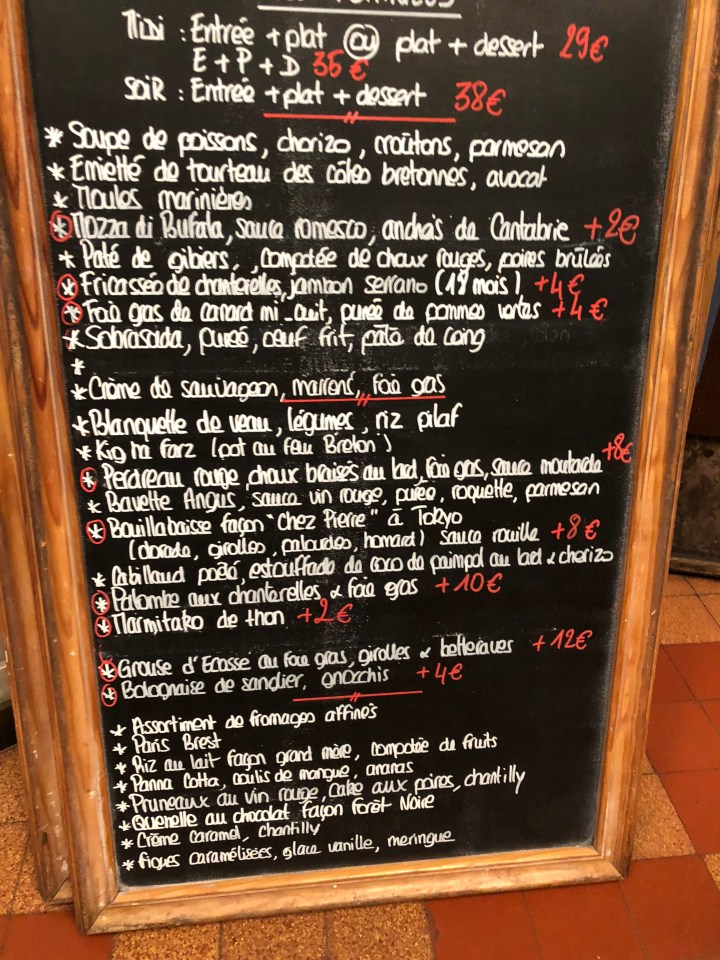 Midi : Entrée + plat ou plat + dessert 29€
E + P + D 36€
SOiR : Entrée + plat + dessert 38€
* Soupe de poissons, chorizo, croûtons, parmesan
* Emietté de tourteau des côtes bretonnes, avocat
* Moules marinières
* Mozza di Bufala, sauce romesco, anchois de Cantabrie +2€
* Paté de gibiers, compotée de choux rouges, poires brûlées
* Fricassée de chanterelles, jambon serrano (18 mois) +4€
* Foie gras de canard mi-cuit, purée de pommes vertes +4€
* Sobrasada, purée, oeuf frit, pâte de coing
*
* Crème de sauvageon, marrons, foie gras
* Blanquette de veau, légumes, riz pilaf
* Kig ha farz (pot au feu Breton)
* Perdreau rouge, choux braisés au lard, foie gas, sauce moutarde +8€
* Bavette Angus, sauce vin rouge, purée, roquette, parmesan
* Bouillabaisse façon "Chez Pierre" à Tokyo
(dorade, girolles, palourdes, homard) sauce rouille +8€
* Cabillaud poêlé, estouffade de coco de paimpol au lard & chorizo
* Palombe aux chanterelles & foie gas +10€
* Marmitako de thon +2€
* Grouse d'Ecosse au foie gras, girolles & betteraves +12€
* Bolognaise de sanglier, gnocchis +4€
* Assortiment de fromages affinés
* Paris Brest
* Riz au lait façon grand mère, compotée de fruits
* Panna Cotta, coulis de mangue, ananas
* Pruneaux au vin rouge, cake aux poires, chantilly
* Quenelle au chocolat façon Forêt Noire
* Crème caramel, chantilly
* figues caramélisées, glace vanille, meringue